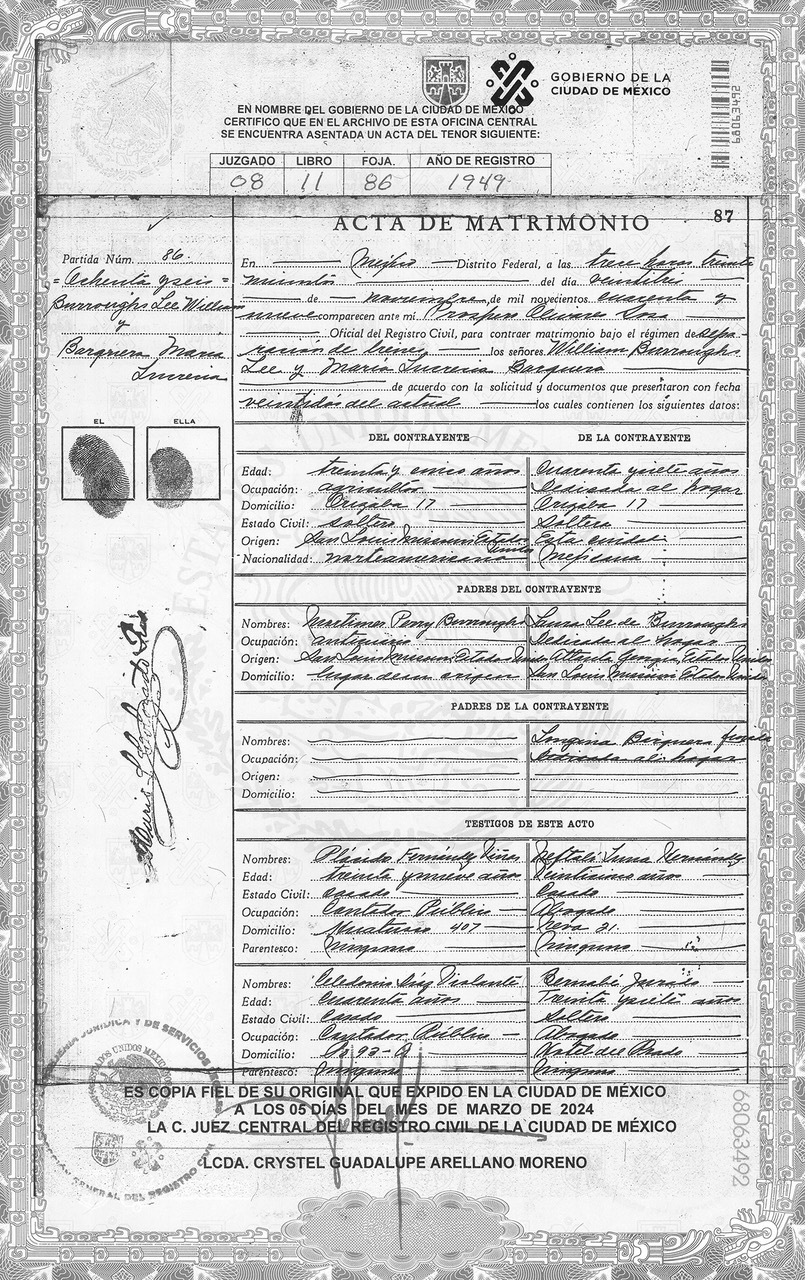 GOBIERNO DE LA
CIUDAD DE MÉXICO
68063492
EN NOMBRE DEL GOBIERNO DE LA CIUDAD DE MÉXICO
CERTIFICO QUE EN EL ARCHIVO DE ESTA OFICINA CENTRAL
SE ENCUENTRA ASENTADA UN ACTA DEL TENOR SIGUIENTE:
JUZGADO LIBRO FOJA. AÑO DE REGISTRO
08 11 86 1949
87
ACTA DE MATRIMONIO
Partida Núm. 86.
= Ochenta y seis =
Burroughs Lee William
y
Barquera Maria
Lucrecia
EL ELLA
En México Distrito Federal, a las trece horas treinta
minutos del día veintitres
de noviembre, de mil novecientos cuarenta y
nueve comparecen ante mí Prospero Olivares Sosa
Oficial del Registro Civil, para contraer matrimonio bajo el régimen de sepa-
ración de bienes, los señores William Burroughs
Lee y Maria Lucrecia Barquera
de acuerdo con la solicitud y documentos que presentaron con fecha
veintidós del actual los cuales contienen los siguientes datos:
DEL CONTRAYENTE DE LA CONTRAYENTE
Edad: treinta y cinco años Cuarenta y siete años
Ocupación: agricultor Dedicada al hogar
Domicilio: Orizaba 17 Orizaba 17
Estado Civil: soltero Soltera
Origen: San Louis Missouri Estados Unidos Esta ciudad
Nacionalidad: norteamericana Mexicana
PADRES DEL CONTRAYENTE
Nombres: Mortimer Perry Burroughs Laura Lee de Burroughs
Ocupación: anticuario Dedicada al hogar
Origen: San Louis Missouri Estados Unidos Atlanta Georgia Estados Unidos
Domicilio: lugar de su origen San Louis Missouri Estados Unidos
PADRES DE LA CONTRAYENTE
Nombres: Longina Barquera
Ocupación: Dedicada al hogar
Origen:
Domicilio:
TESTIGOS DE ESTE ACTO
Nombres: Plácido Fernández Viñas Neftalí Luna Hernández
Edad: treinta y nueve años Veinticinco años
Estado Civil: casado Casado
Ocupación: Contador Público Abogado
Domicilio: 407 21.
Parentesco: Ninguno Ninguno
Nombres: Celedonio Díaz Violante Bernabé Jurado
Edad: Cuarenta años Treinta y siete años
Estado Civil: Casado Soltero
Ocupación: Contador Público Abogado
Domicilio: Hotel del Prado
Parentesco: Ninguno Ninguno
ES COPIA FIEL DE SU ORIGINAL QUE EXPIDO EN LA CIUDAD DE MÉXICO
A LOS 05 DÍAS DEL MES DE MARZO DE 2024
LA C. JUEZ CENTRAL DEL REGISTRO CIVIL DE LA CIUDAD DE MÉXICO
LCDA. CRYSTEL GUADALUPE ARELLANO MORENO
68063492